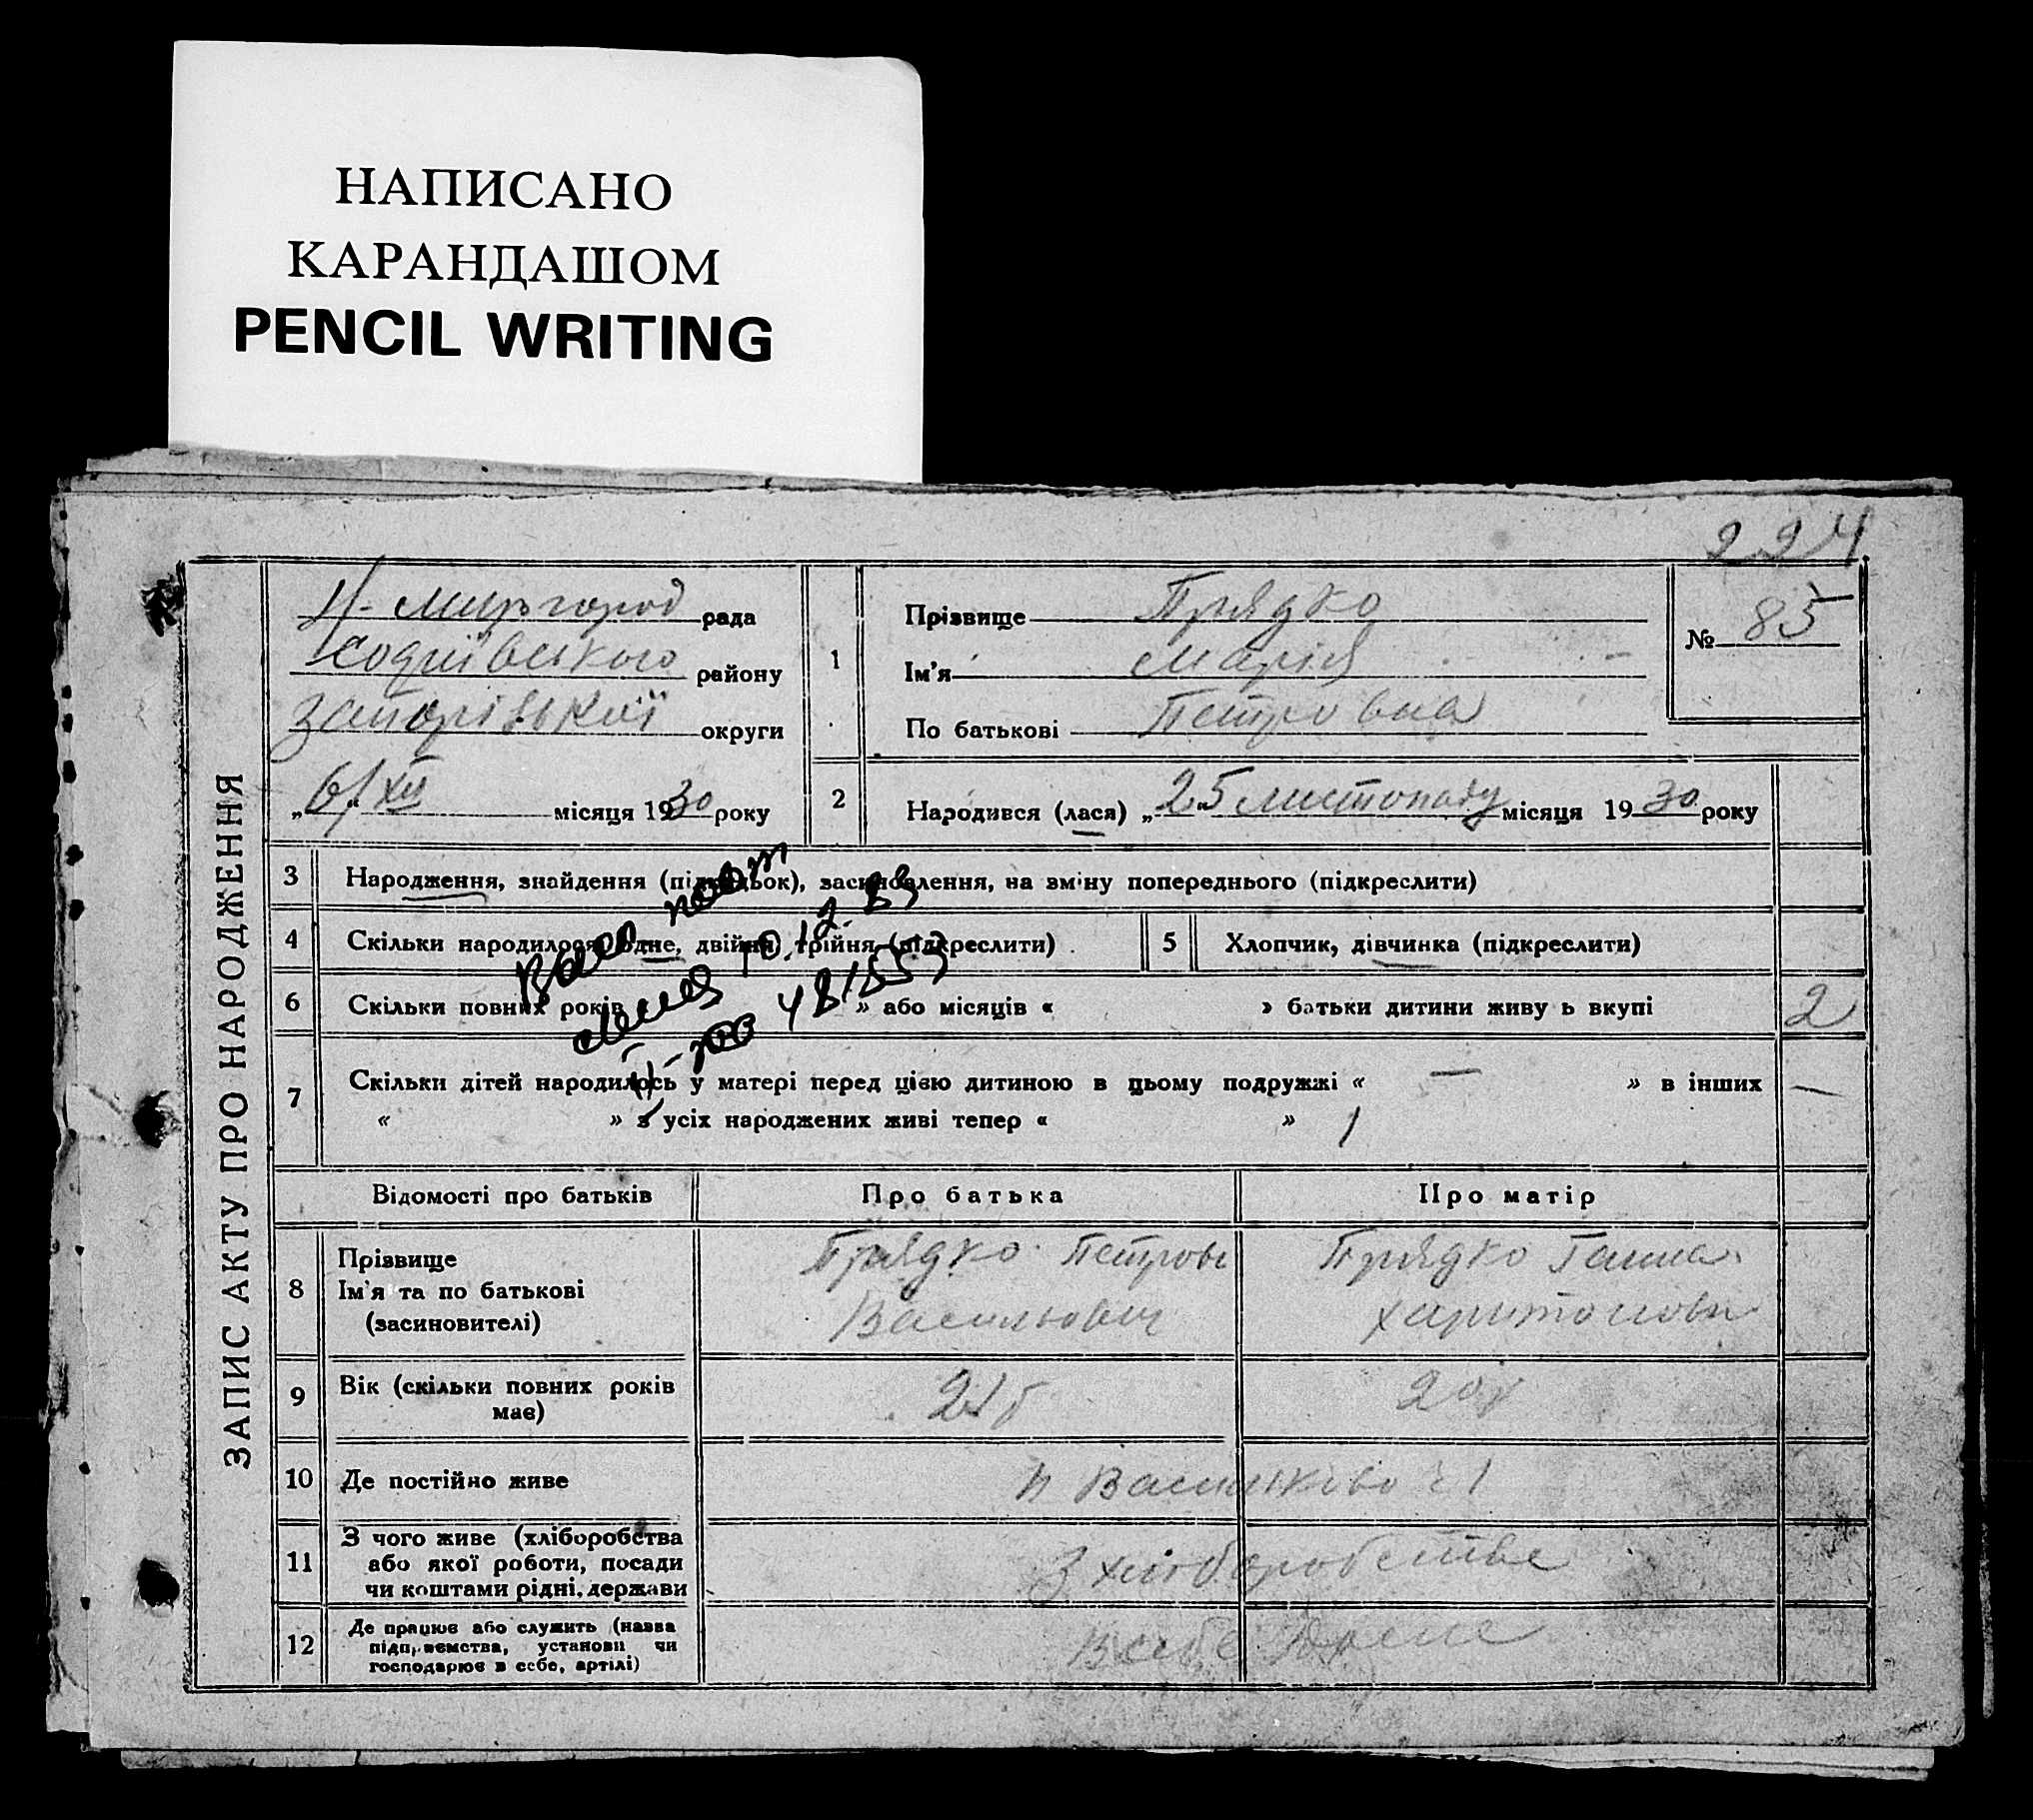 НАПИСАНО
КАРАНДАШОМ
PENCIL WRITING
224
ЗАПИС АКТУ ПРО НАРОДЖЕННЯ
Н-Миргород рада
Софиївського району
Запорізької округи
„6/ХІІ місяця 1930 року
1
Прізвище Прядко
Ім'я Марія
По батькові Петровна
№ 85
2
Народився (лася) „25 листопаду місяця 1930 року
3 Народження, знайдення (підкидьок), засиновлення, на зміну попереднього (підкреслити)
4 Скільки народилося: одне, двійня, трійня (підкреслити)
5 Хлопчик, дівчинка (підкреслити)
6 Скільки повних років » або місяців « » батьки дитини живу ь вкупі 2
10.12.83
481553
7 Скільки дітей народилось у матері перед цією дитиною в цьому подружжі « — » в інших —
« » з усіх народжених живі тепер « » 1
Відомості про батьків
Про батька
Про матір
8 Прізвище
Ім'я та по батькові
(засиновителі)
Прядко Петровь
Васильович
Прядко Ганна
Харитонови
9 Вік (скільки повних років
має)
21
20
10 Де постійно живе
Васильково
11 З чого живе (хліборобства
або якої роботи, посади
чи коштами рідні, держави
З хліборобства
12 Де працює або служить (назва
підприємства, установи чи
господарює в себе, артілі)
В себе дома